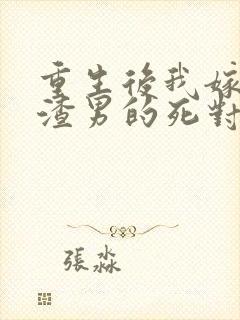 重生後我嫁
渣男的死對
張淼